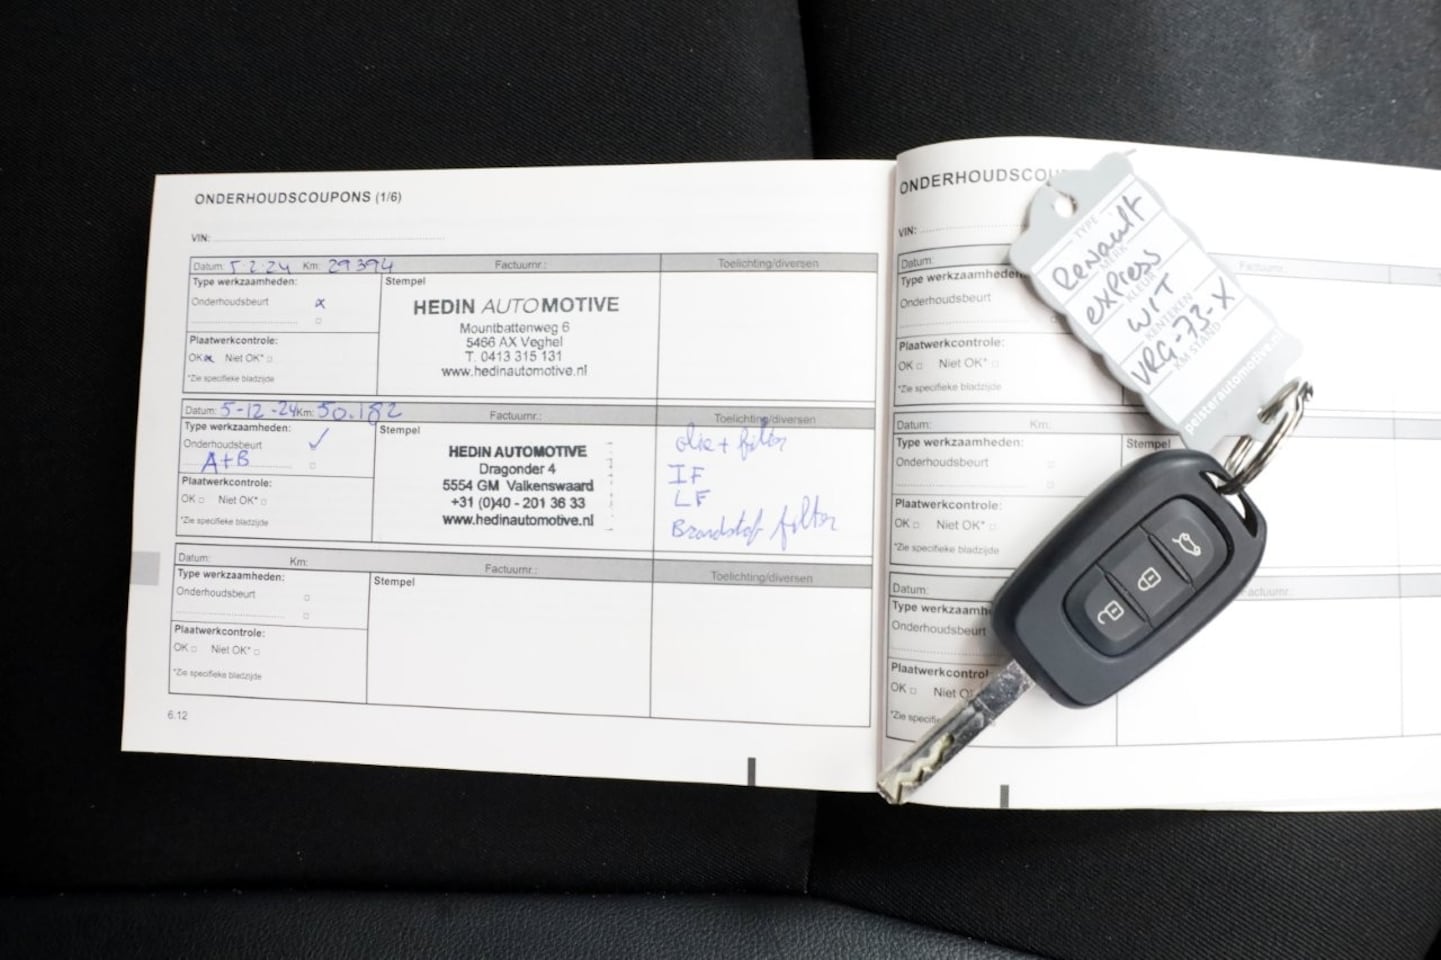 ONDERHOUDSCOUPONS (1/6)
VIN:
Datum: 5-2-24 Km: 29394 Factuurnr.: Toelichting/diversen
Type werkzaamheden:
Onderhoudsbeurt
Plaatwerkcontrole:
OK Niet OK*
*Zie specifieke bladzijde
Stempel
HEDIN AUTOMOTIVE
Mountbattenweg 6
5466 AX Veghel
T. 0413 315 131
www.hedinautomotive.nl
Datum: 5-12-24 Km: 50.182 Factuurnr.: Toelichting/diversen
Type werkzaamheden:
Onderhoudsbeurt ✓
A+B
Plaatwerkcontrole:
OK Niet OK*
*Zie specifieke bladzijde
Stempel
HEDIN AUTOMOTIVE
Dragonder 4
5554 GM Valkenswaard
+31 (0)40 - 201 36 33
www.hedinautomotive.nl
olie + filter
IF
LF
Brandstof filter
Datum: Km: Factuurnr.: Toelichting/diversen
Type werkzaamheden:
Onderhoudsbeurt
Plaatwerkcontrole:
OK Niet OK*
*Zie specifieke bladzijde
Stempel
6.12
ONDERHOUDSCOU
VIN:
Datum: Factuurnr.:
Type werkzaamheden
Onderhoudsbeurt
Plaatwerkcontrole:
OK Niet OK*
*Zie specifieke bladzijde
Datum: Km:
Type werkzaamheden:
Onderhoudsbeurt
Plaatwerkcontrole:
OK Niet OK*
*Zie specifieke bladzijde
Stempel
Datum: Factuurnr.:
Type werkzaamh
Onderhoudsbeurt
Plaatwerkcontrol
OK Niet O
*Zie specifie
TYPE
Renault
MERK
express
KLEUR
WIT
KENTEKEN
VRG-73-X
KM STAND
pelsterautomotive.nl